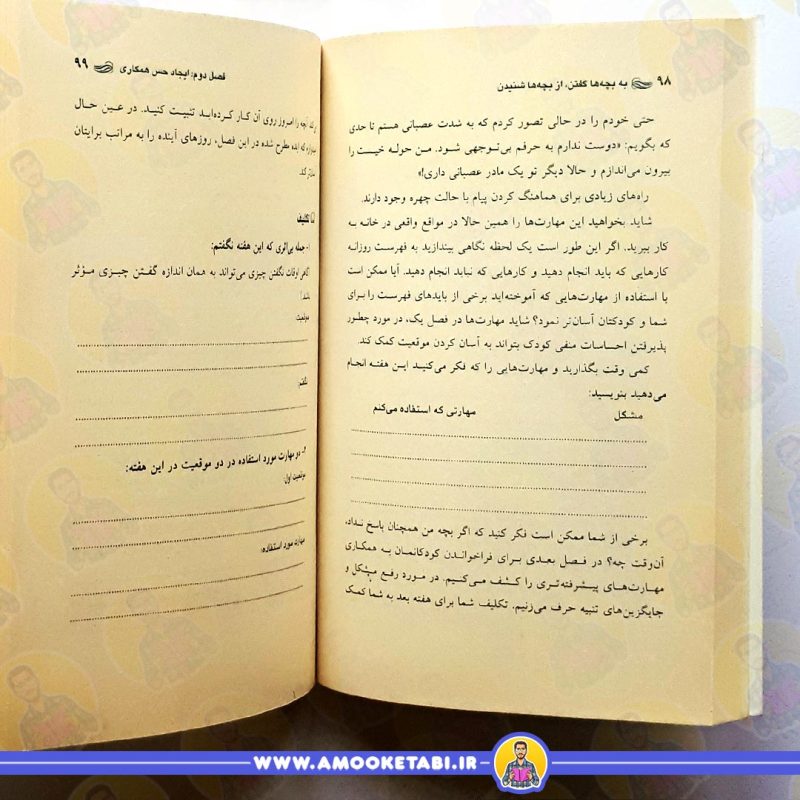 ۹۸ به بچه‌ها گفتن، از بچه‌ها شنیدن
حتی خودم را در حالی تصور کردم که به شدت عصبانی هستم تا حدی
که بگویم: «دوست ندارم به حرفم بی‌توجهی شود. من حوله خیست را
بیرون می‌اندازم و حالا دیگر تو یک مادر عصبانی داری!»
راه‌های زیادی برای هماهنگ کردن پیام با حالت چهره وجود دارند.
شاید بخواهید این مهارت‌ها را همین حالا در مواقع واقعی در خانه به
کار ببرید. اگر این طور است یک لحظه نگاهی بیندازید به فهرست روزانه
کارهایی که باید انجام دهید و کارهایی که نباید انجام دهید. آیا ممکن است
با استفاده از مهارت‌هایی که آموخته‌اید برخی از بایدهای فهرست را برای
شما و کودکتان آسان‌تر نمود؟ شاید مهارت‌ها در فصل یک، در مورد چطور
پذیرفتن احساسات منفی کودک بتواند به آسان کردن موقعیت کمک کند.
کمی وقت بگذارید و مهارت‌هایی را که فکر می‌کنید این هفته انجام
می‌دهید بنویسید:
مشکل مهارتی که استفاده می‌کنم
برخی از شما ممکن است فکر کنید که اگر بچه من همچنان پاسخ نداد،
آن‌وقت چه؟ در فصل بعدی برای فراخواندن کودکانمان به همکاری
مهارت‌های پیشرفته‌تری را کشف می‌کنیم. در مورد رفع مشکل و
جایگزین‌های تنبیه حرف می‌زنیم. تکلیف شما برای هفته بعد به شما کمک
فصل دوم: ایجاد حس همکاری ۹۹
آنچه را امروز روی آن کار کرده‌اید تثبیت کنید. در عین حال
که ایده مطرح شده در این فصل، روزهای آینده را به مراتب برایتان
تکلیف
۱- جمله بی‌اثری که این هفته نگفتم:
گاهی اوقات نگفتن چیزی می‌تواند به همان اندازه گفتن چیزی مؤثر
باشد!
موقعیت:
نگفتم:
۲- دو مهارت مورد استفاده در دو موقعیت در این هفته:
موقعیت اول:
مهارت مورد استفاده:
WWW.AMOOKETABI.IR